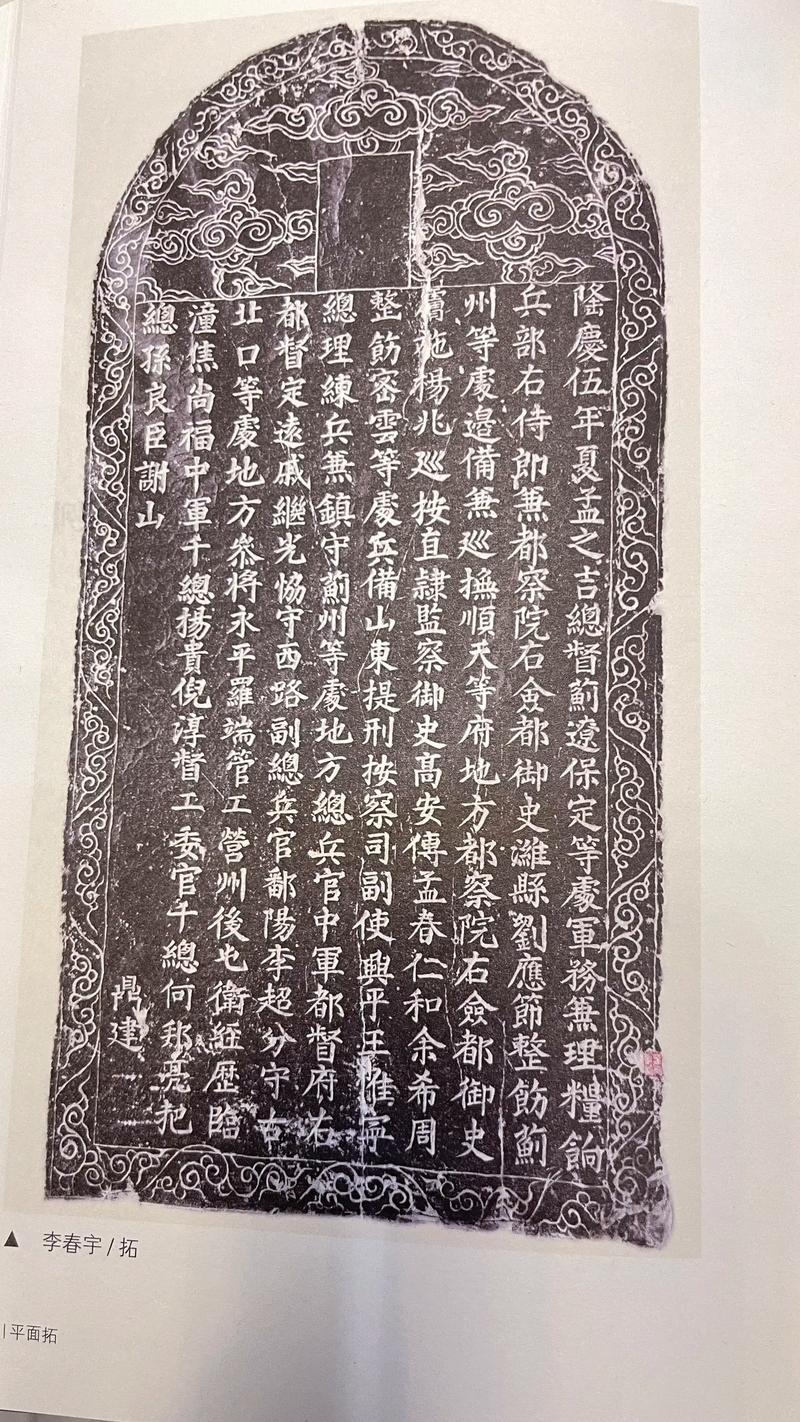 隆慶伍年夏孟之吉總督薊遼保定等處軍務兼理糧餉
兵部右侍郎兼都察院右僉都御史濰縣劉應節整飭薊
州等處邊備兼巡撫順天等府地方都察院右僉都御史
膚施楊兆巡按直隸監察御史高安傅孟春仁和余希周
整飭密雲等處兵備山東提刑按察司副使興平王惟寧
總理練兵兼鎮守薊州等處地方總兵官中軍都督府右
都督定遠戚繼光協守西路副總兵官鄱陽李超分守古
北口等處地方叅將永平羅端管工營州後屯衛經歷臨
潼焦尚福中軍千總楊貴倪淳督工委官千總何邦亮把
總孫良臣謝山
鼎建
▲ 李春宇/拓
|平面拓